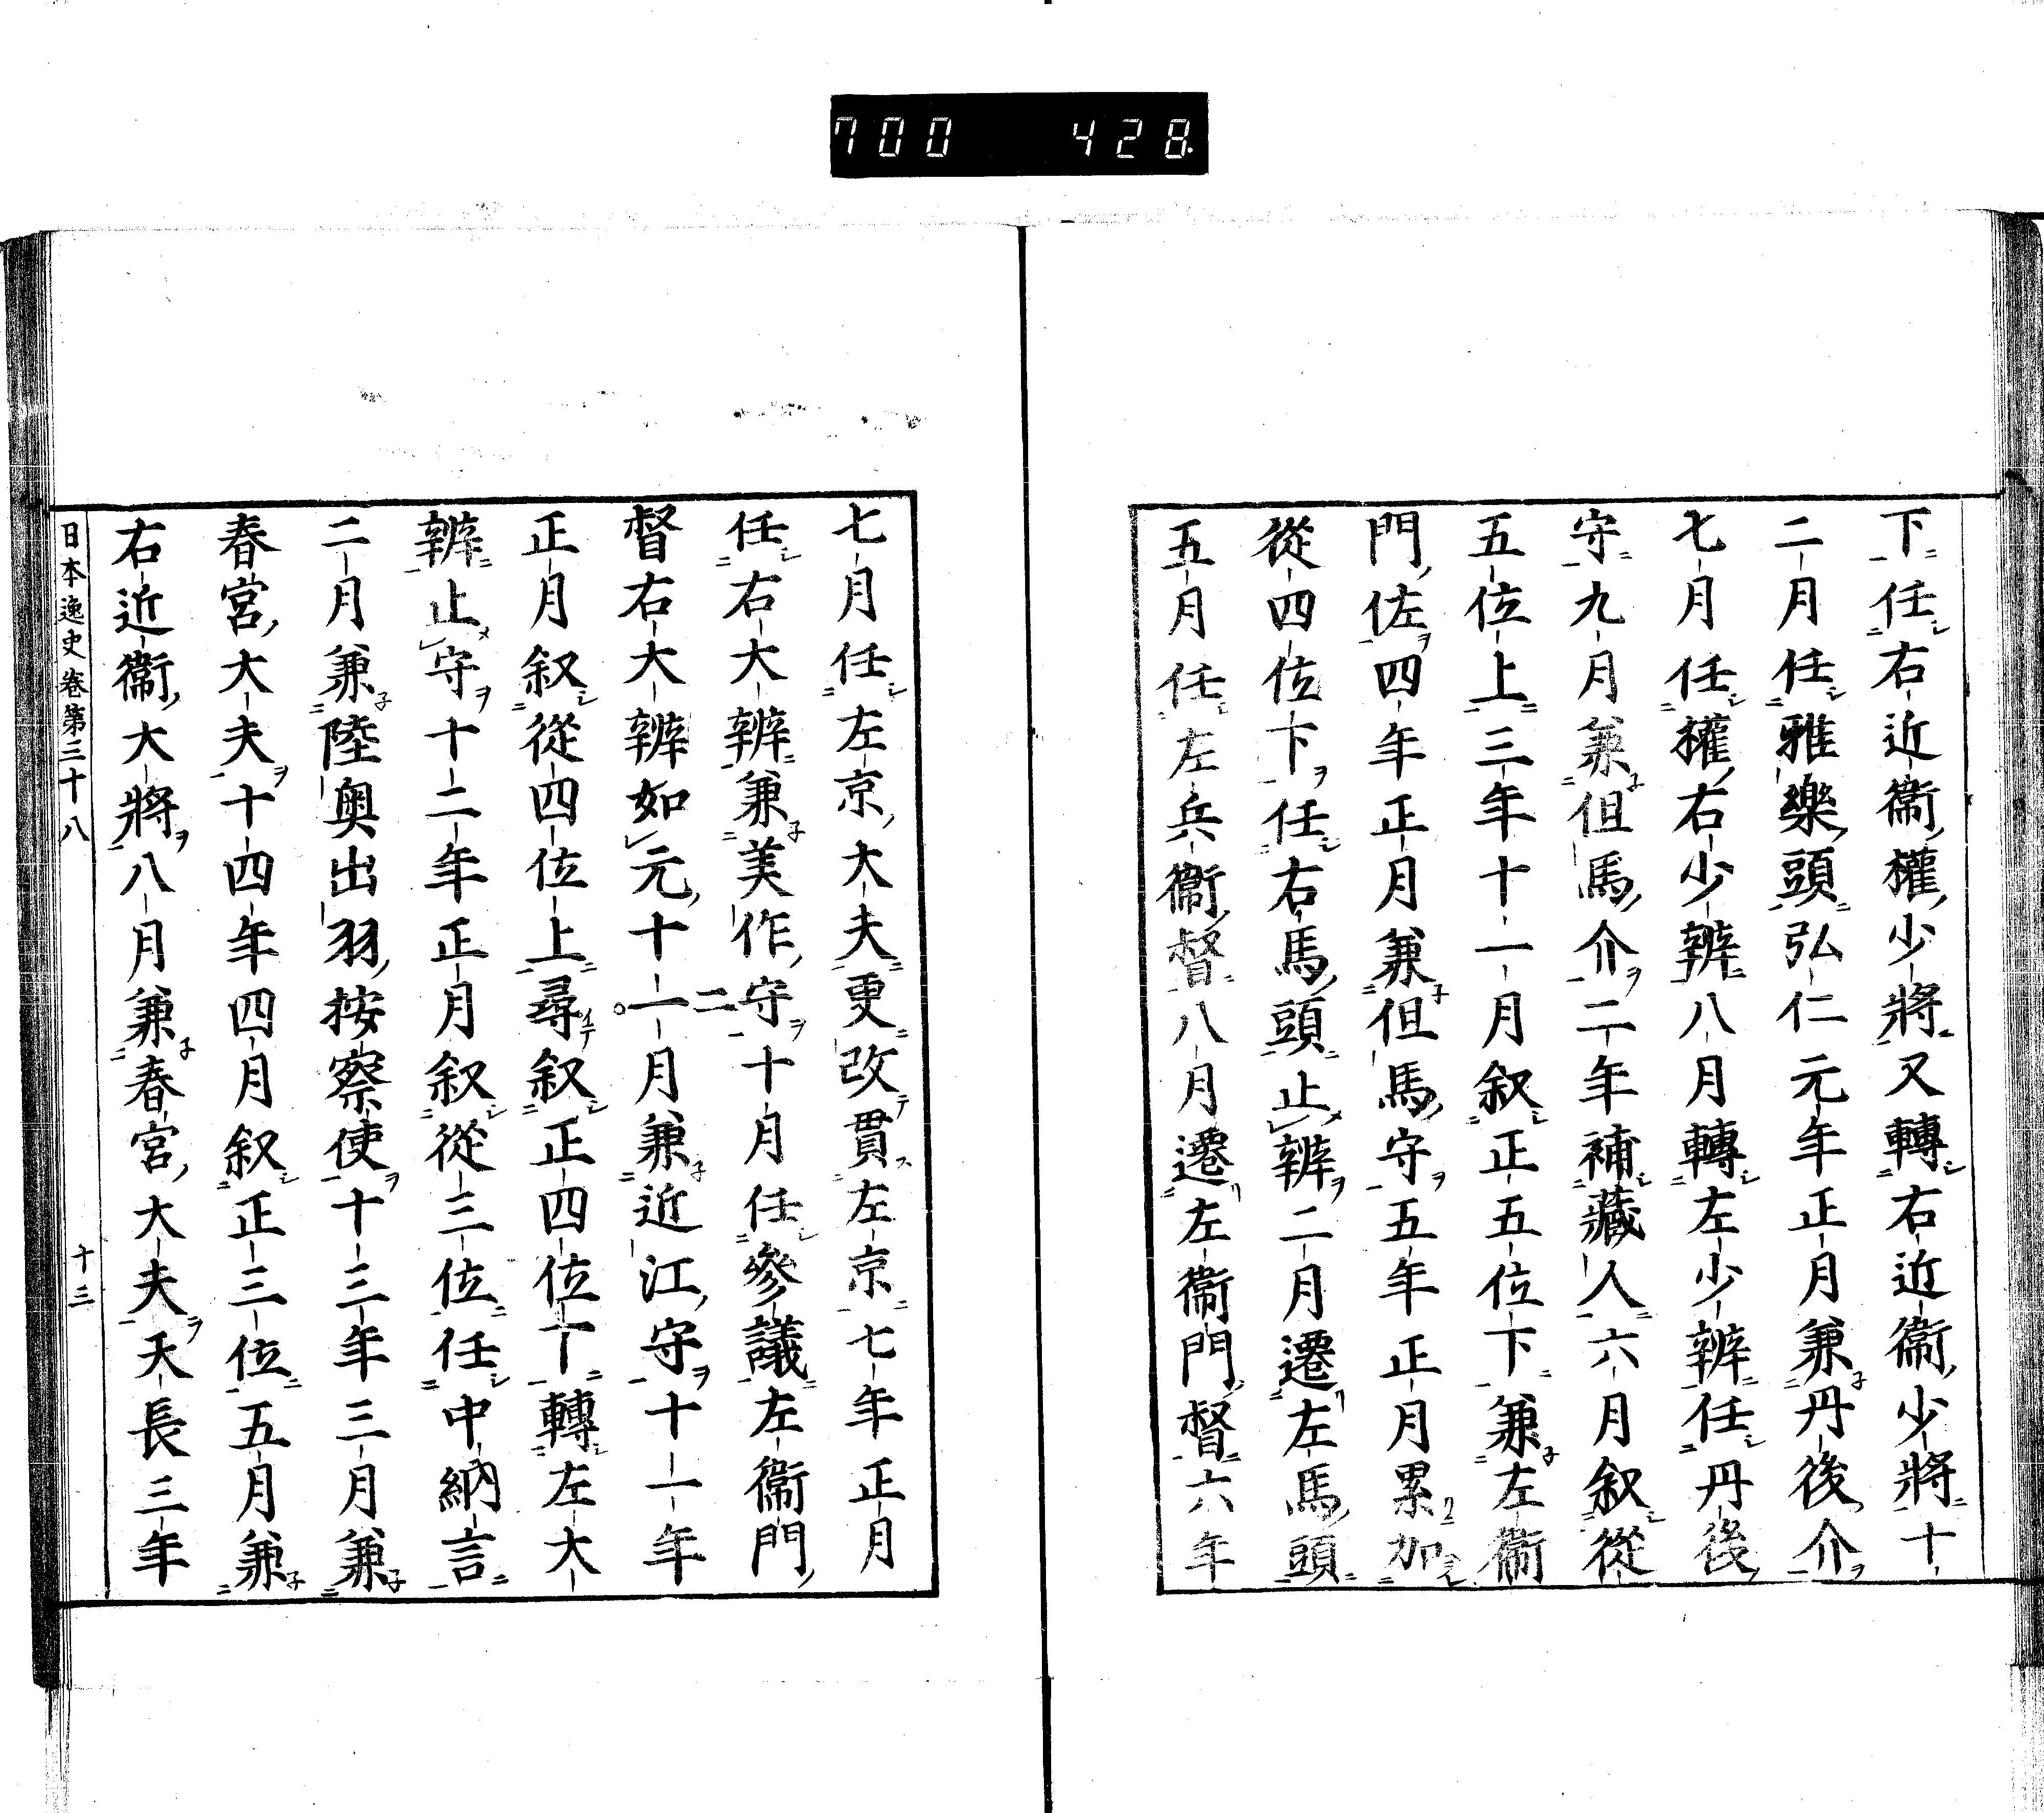 700 428
下任右近衞權少將又轉右近衞少將十
二月任雅樂頭弘仁元年正月兼丹後介
七月任權右少辨八月轉左少辨任丹後
守九月兼但馬介二年補藏人六月叙從
五位上三年十一月叙正五位下兼左衞
門佐四年正月兼但馬守五年正月累加
從四位下任右馬頭止辨二月遷左馬頭
五月任左兵衞督八月遷左衞門督六年
七月任左京大夫更改貫左京七年正月
任右大辨兼美作守十月任參議左衞門
督右大辨如元十一二月兼近江守十一年
正月叙從四位上尋叙正四位下轉左大
辨止守十二年正月叙從三位任中納言
二月兼陸奥出羽按察使十三年三月兼
春宮大夫十四年四月叙正三位五月兼
右近衞大將八月兼春宮大夫天長三年
日本逸史卷第三十八 十三